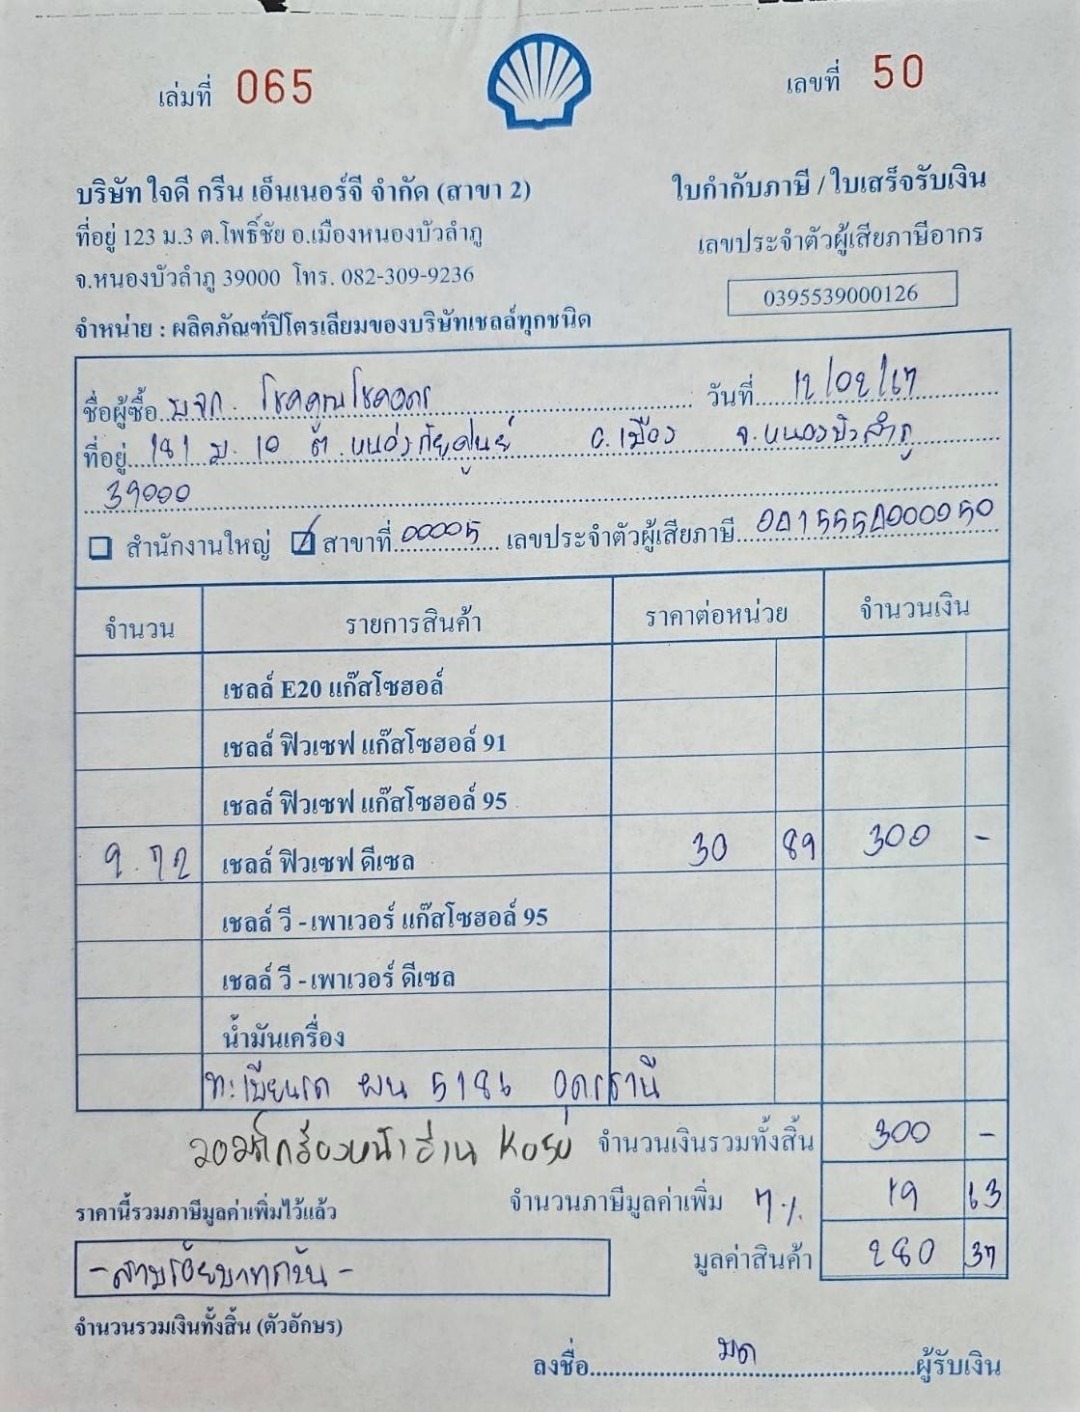 เล่มที่ 065
เลขที่ 50
บริษัท ใจดี กรีน เอ็นเนอร์จี จำกัด (สาขา 2)
ใบกำกับภาษี / ใบเสร็จรับเงิน
ที่อยู่ 123 ม.3 ต.โพธิ์ชัย อ.เมืองหนองบัวลำภู
เลขประจำตัวผู้เสียภาษีอากร
จ.หนองบัวลำภู 39000 โทร. 082-309-9236
0395539000126
จำหน่าย : ผลิตภัณฑ์ปิโตรเลียมของบริษัทเชลล์ทุกชนิด
ชื่อผู้ซื้อ บจก. โชคคูณโชคอดร วันที่ 12/02/67
ที่อยู่ 181 ม.10 ต.หนองภัยศูนย์ อ.เมือง จ.หนองบัวลำภู
39000
สำนักงานใหญ่ สาขาที่ 00005 เลขประจำตัวผู้เสียภาษี
จำนวน รายการสินค้า ราคาต่อหน่วย จำนวนเงิน
เชลล์ E20 แก๊สโซฮอล์
เชลล์ ฟิวเซฟ แก๊สโซฮอล์ 91
เชลล์ ฟิวเซฟ แก๊สโซฮอล์ 95
9.72 เชลล์ ฟิวเซฟ ดีเซล 30 89 300 -
เชลล์ วี - เพาเวอร์ แก๊สโซฮอล์ 95
เชลล์ วี - เพาเวอร์ ดีเซล
น้ำมันเครื่อง
ทะเบียนรถ ผน 5186 อุดรธานี
จำนวนเงินรวมทั้งสิ้น 300 -
ราคานี้รวมภาษีมูลค่าเพิ่มไว้แล้ว
จำนวนภาษีมูลค่าเพิ่ม 7% 19 63
-สามร้อยบาทถ้วน-
มูลค่าสินค้า 280 37
จำนวนรวมเงินทั้งสิ้น (ตัวอักษร)
ลงชื่อ มด ผู้รับเงิน